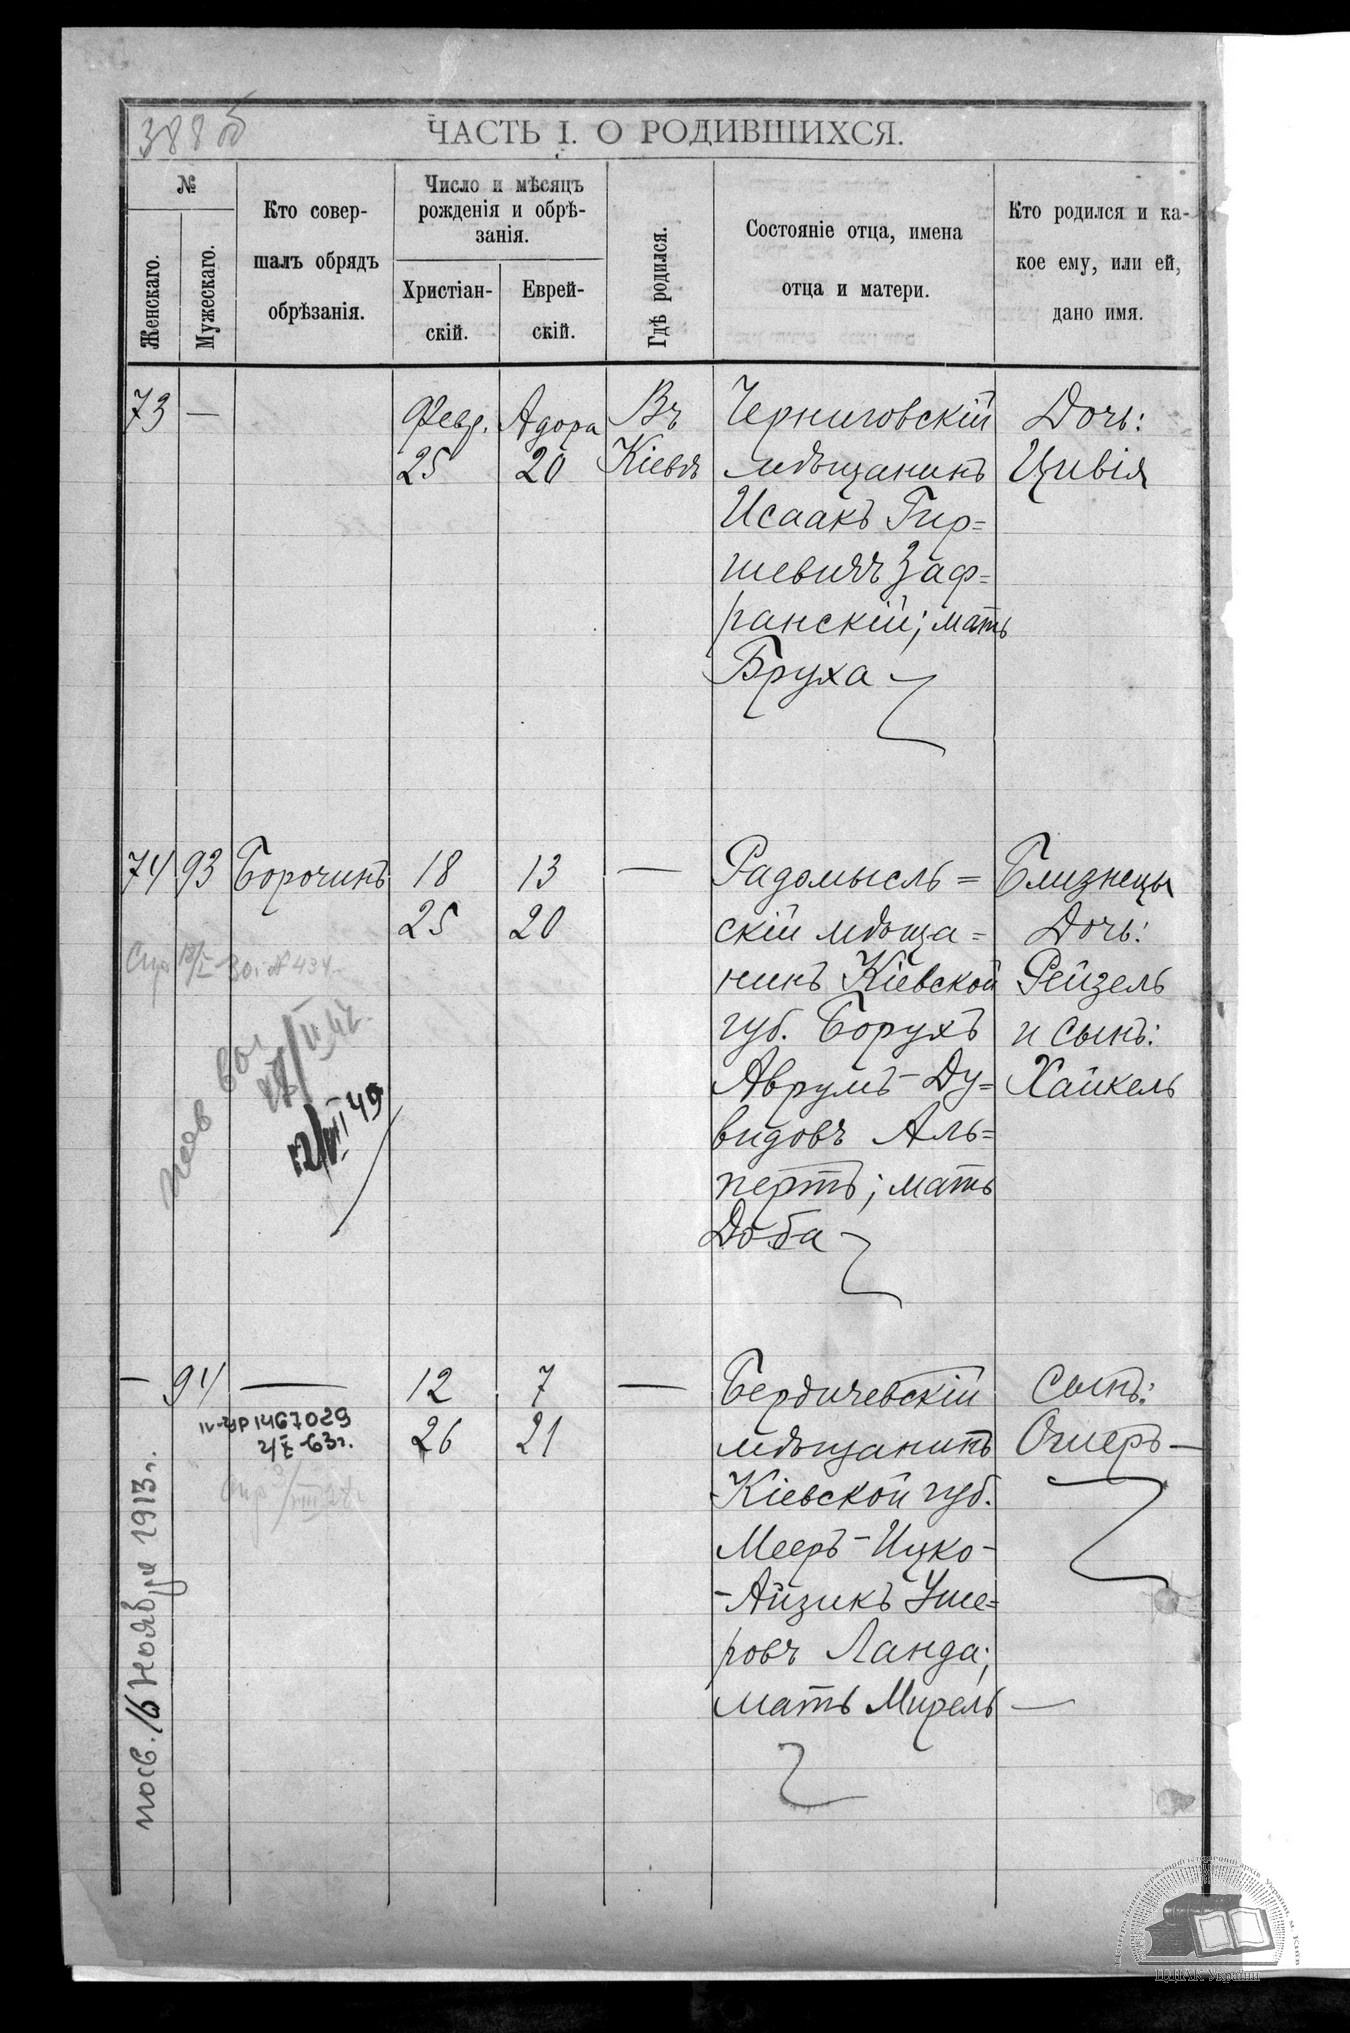 388 об
ЧАСТЬ I. О РОДИВШИХСЯ.
№
Женскаго.
Мужескаго.
Кто совер-
шалъ обрядъ
обрѣзанія.
Число и мѣсяцъ
рожденія и обрѣ-
занія.
Христіан-
скій.
Еврей-
скій.
Гдѣ родился.
Состояніе отца, имена
отца и матери.
Кто родился и ка-
кое ему, или ей,
дано имя.
73 —
Февр.
25
Адора
20
Въ
Кіевѣ
Черниговскій
мѣщанинъ
Исаакъ Гир=
шевичъ Заф=
ранскій; мать
Бруха
Дочь:
Цивія
74 93 Борочинъ
18
25
13
20
—
Радомысль=
скій мѣща=
нинъ Кіевской
губ. Борухъ
Аврумъ-Ду=
видовъ Аль=
пертъ; мать
Доба
Близнецы
Дочь:
Рейзель
и сынъ:
Хайкель
12/VII 49
— 94 —
12
26
7
21
—
Бердичевскій
мѣщанинъ
Кіевской губ.
Мееръ-Ицко-
-Айзикъ Уше=
ровъ Ланда;
мать Мирель —
Сынъ:
Ошеръ —
1467029
2/X-63г.
16 Ноября 1913 г.
ЦДІАК України